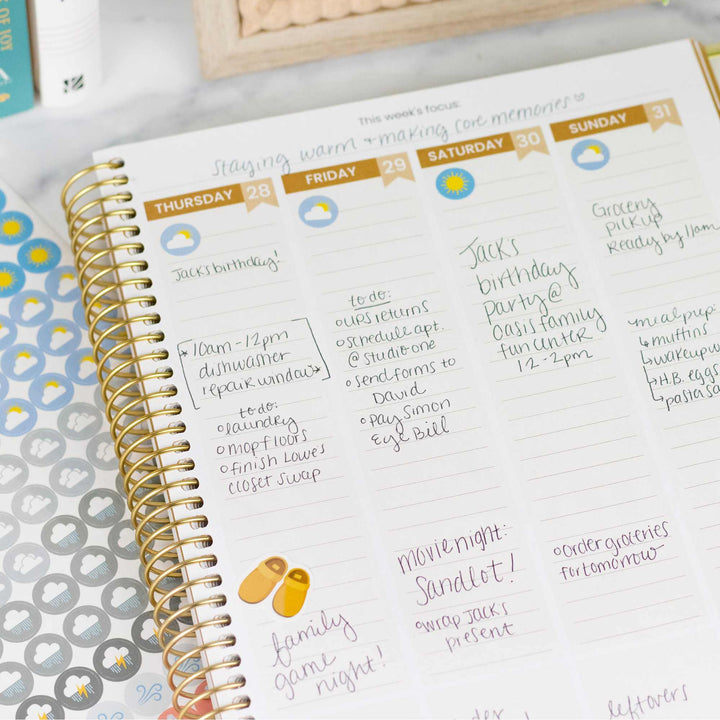 OF JOY
This week's focus:
staying warm + making core memories ♡
THURSDAY 28
Jack's birthday!
10am-12pm
dishwasher
repair window
to do:
○ laundry
○ mop floors
○ finish Lowes
closet swap
family
game
night!
FRIDAY 29
to do:
○ UPS returns
○ schedule apt.
@ studio one
○ send forms to
David
○ pay Simon
Eye Bill
movie night:
Sandlot!
○ wrap Jacks
present
SATURDAY 30
Jack's
birthday
party @
Oasis family
fun center
12-2pm
○ order groceries
for tomorrow
SUNDAY 31
Grocery
pickup
Ready by 11am
meal prep:
↳ muffins
↳ H.B. eggs
↳ pasta sa
leftovers